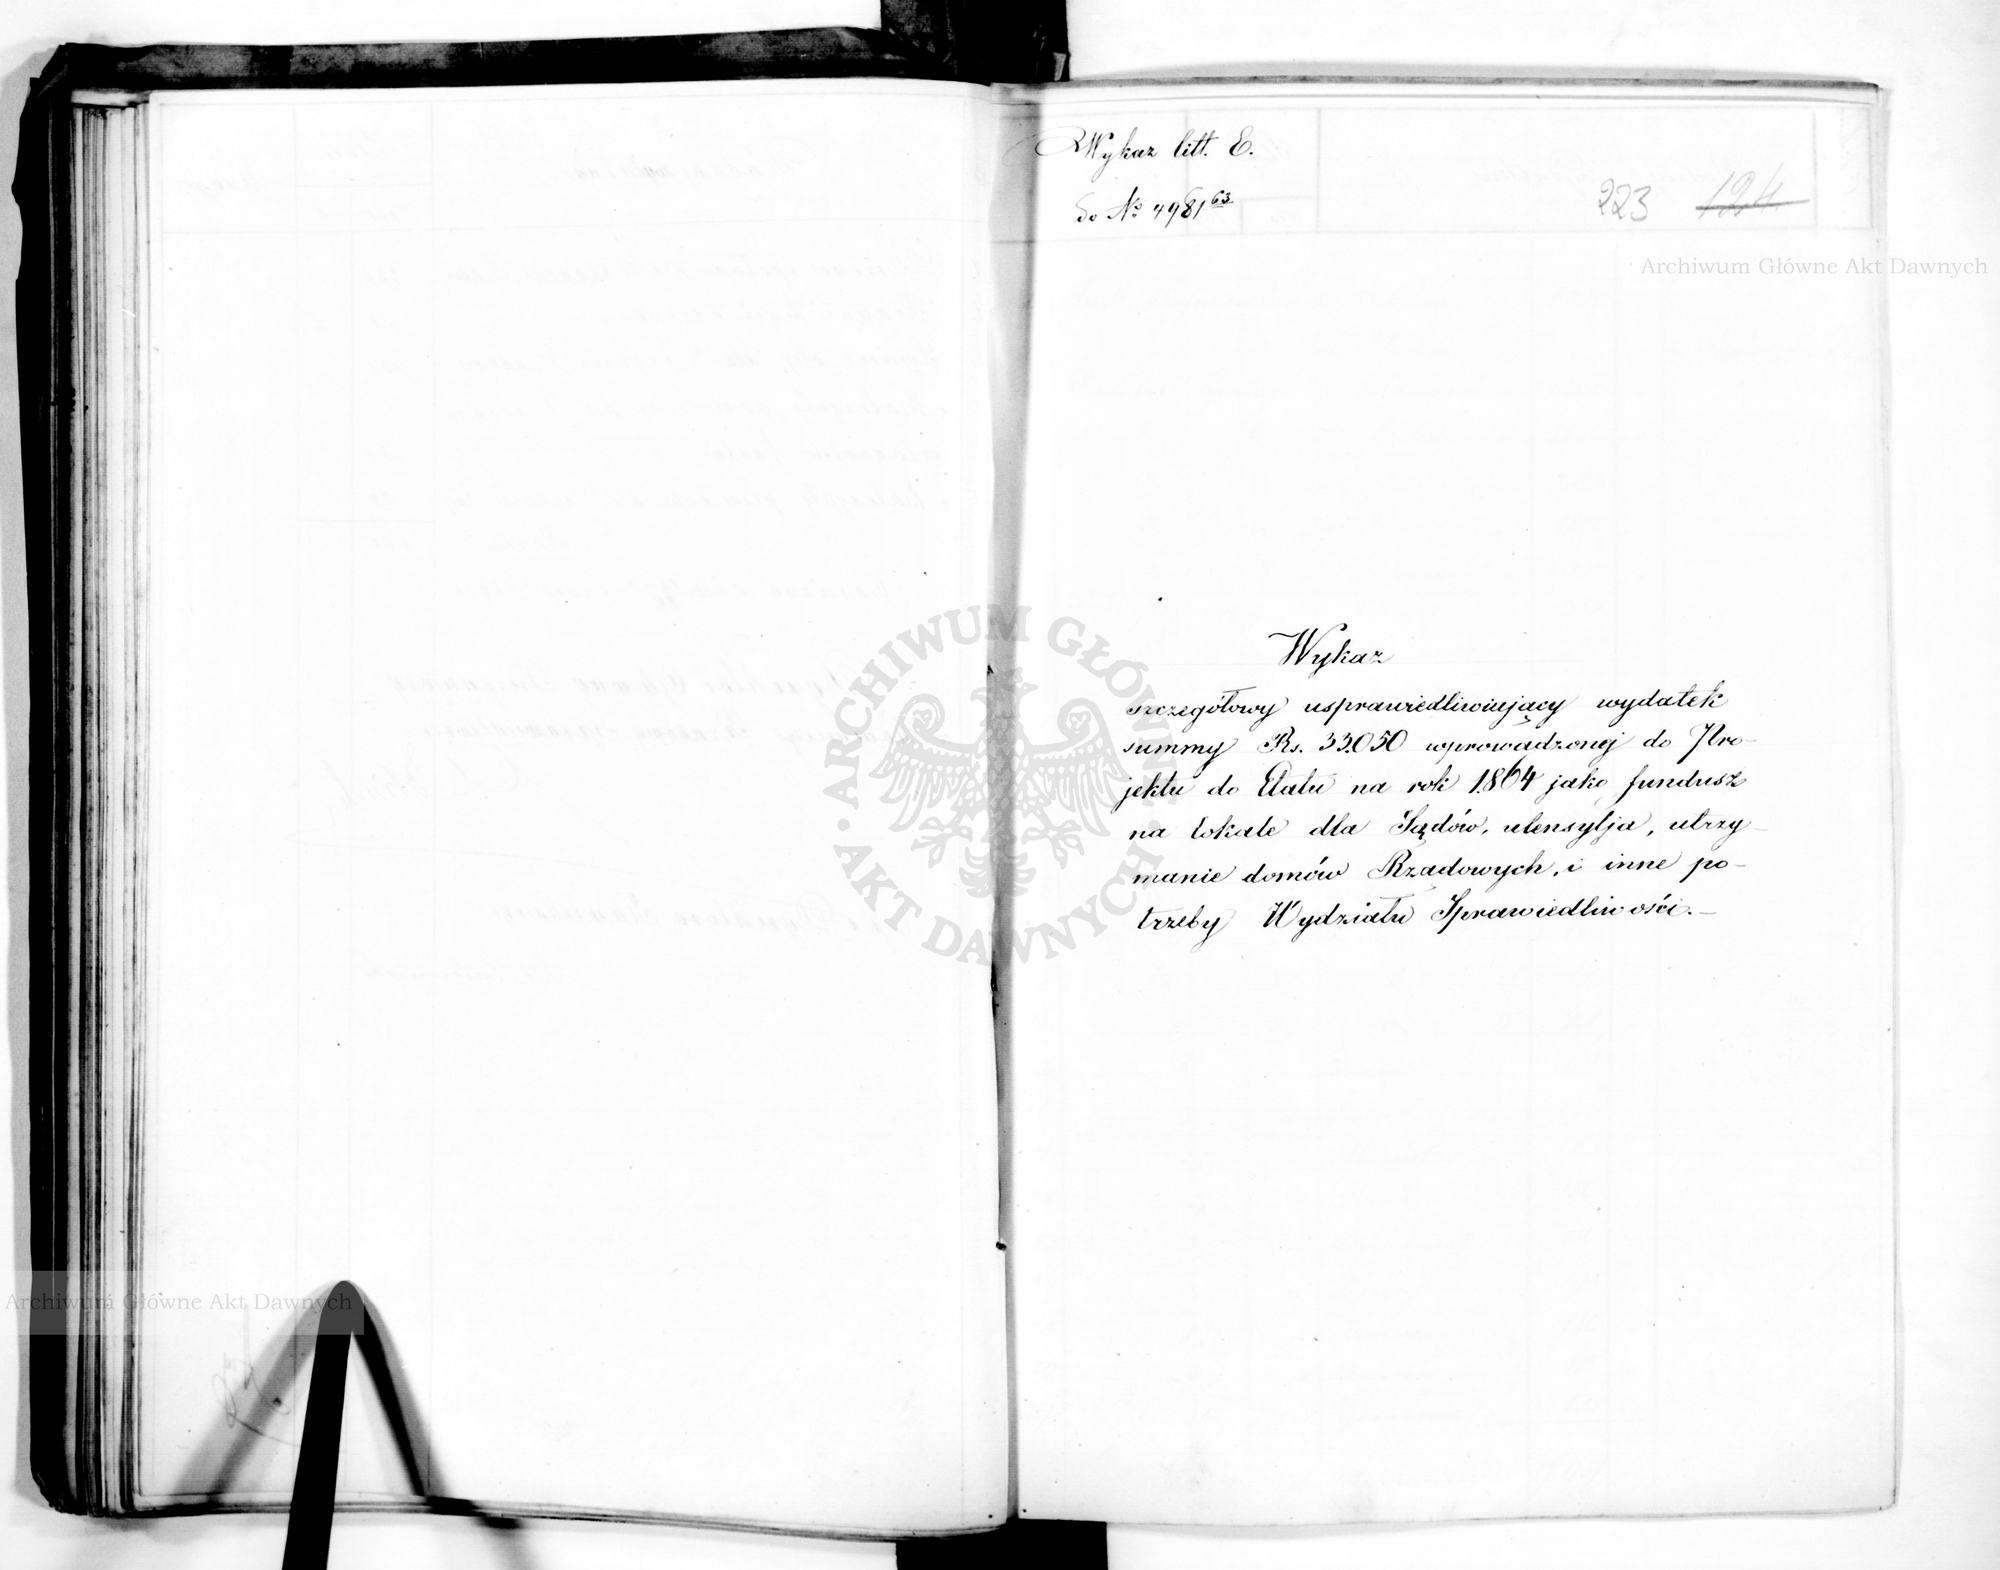 Wykaz litt. E.
do № 4981 63
223 124
Archiwum Główne Akt Dawnych
Wykaz
szczegółowy usprawiedliwiający wydatek
summy Rs. 33.050 wprowadzonej do Pro-
jektu do Etatu na rok 1864 jako fundusz
na lokale dla Sądów, utensylja, utrzy-
manie domów Rządowych, i inne po-
trzeby Wydziału Sprawiedliwości.-
ARCHIWUM GŁÓWNE
AKT DAWNYCH
Archiwum Główne Akt Dawnych